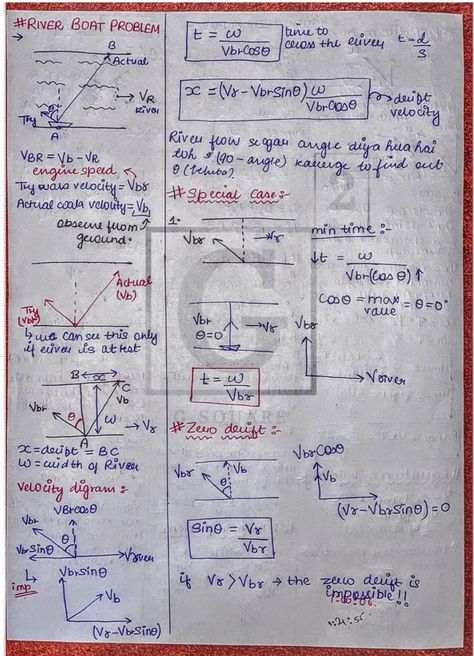 #RIVER BOAT PROBLEM
B
Actual
θ
VR
River
Try
A
VBR = Vb - VR
engine speed
Try waala velocity = Vbr
Actual waala velocity = Vb
observe from
ground.
Actual
(Vb)
Try
(Vbr)
↳ we can see this only
if river is at rest
B x C
Vbr
θ
Vb
w
→ Vr
A
x = drift = BC
w = width of River
Velocity digram :-
Vbrcosθ
Vbr
θ
VbrSinθ
Vriver
imp
VbrSinθ
Vb
(Vr-VbrSinθ)
t = w / VbrCosθ
time to
cross the river
t = d/s
x = (Vr - VbrSinθ) w / VbrCosθ
drift
velocity
River flow se agar angle diya hua hai
toh (90 - angle) karenge to find out
θ
#Special Case :-
1.
Vbr
→Vr
min time :-
↓t = w / Vbr(cosθ)↑
Cosθ = max value = θ=0°
Vbr
θ=0
→Vr
Vbr
Vriver
t = w / Vbr
G SQUARE
2
#Zero drift :-
Vbr
θ
Vb
→Vr
VbrCosθ
Vb
(Vr - VbrSinθ) = 0
Sinθ = Vr / Vbr
if Vr > Vbr → the zero drift is
impossible!!